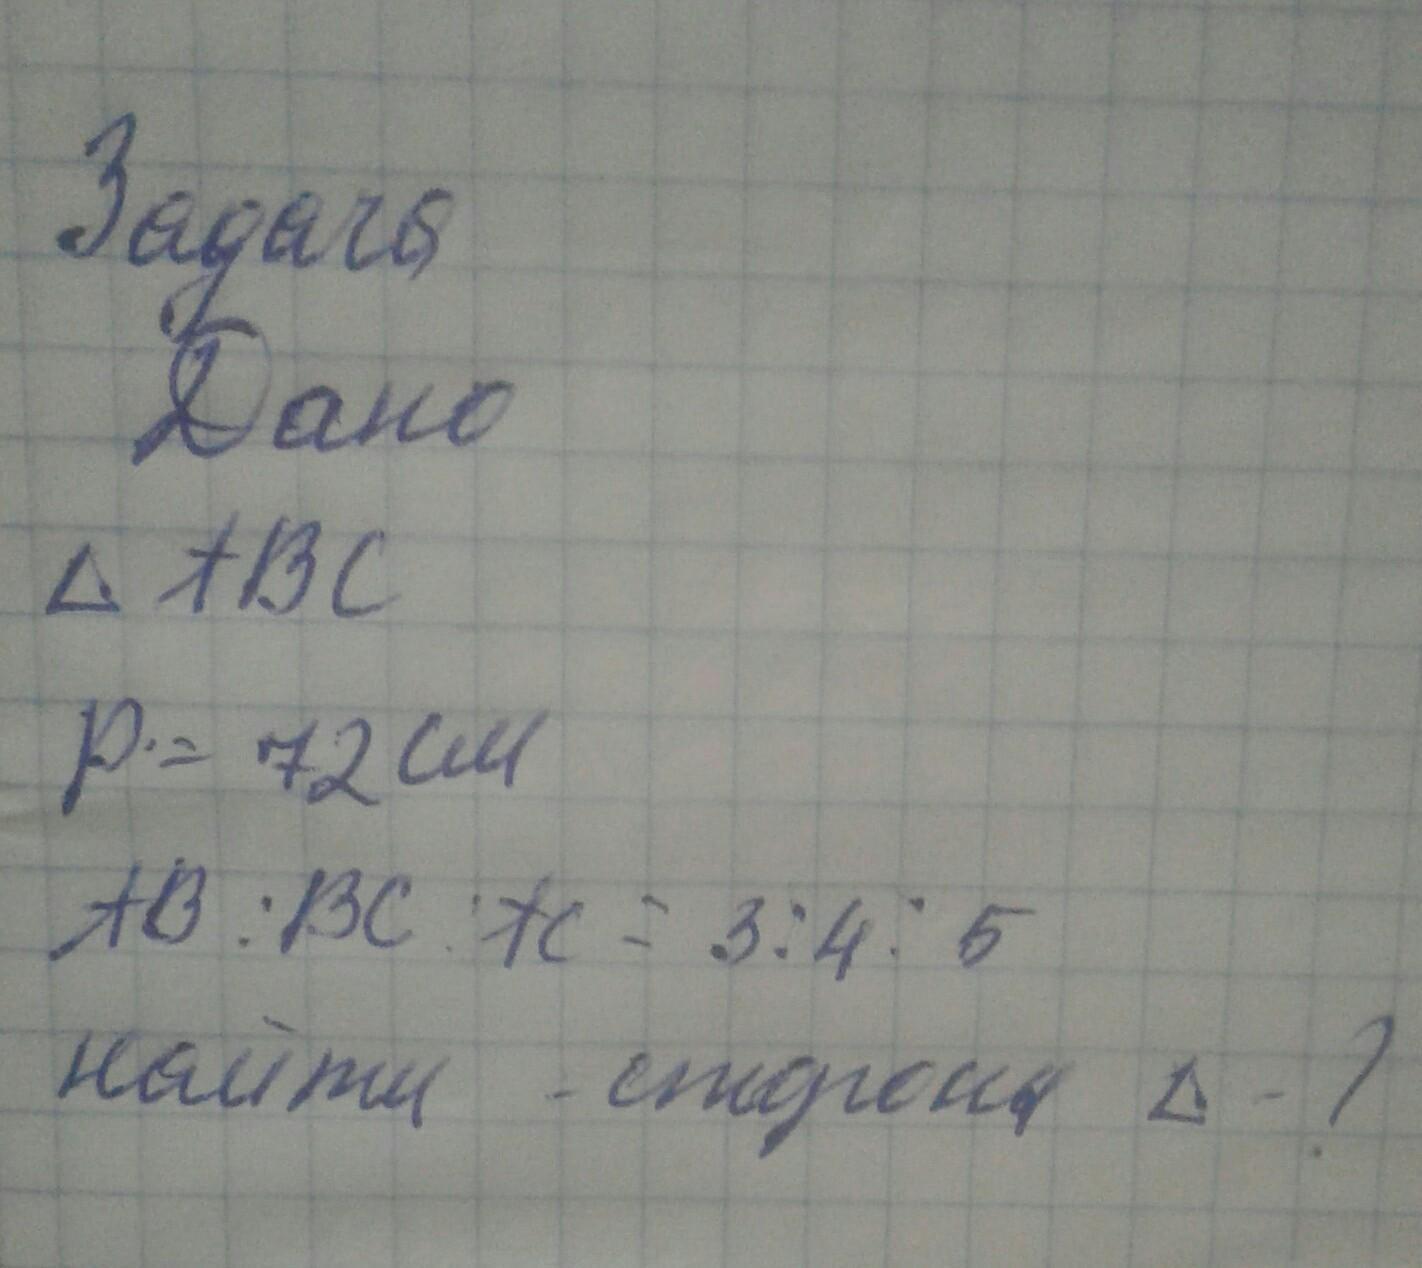 Задача
Дано
△ ABC
P = 72 см
AB : BC : AC = 3 : 4 : 5
найти - стороны △ - ?